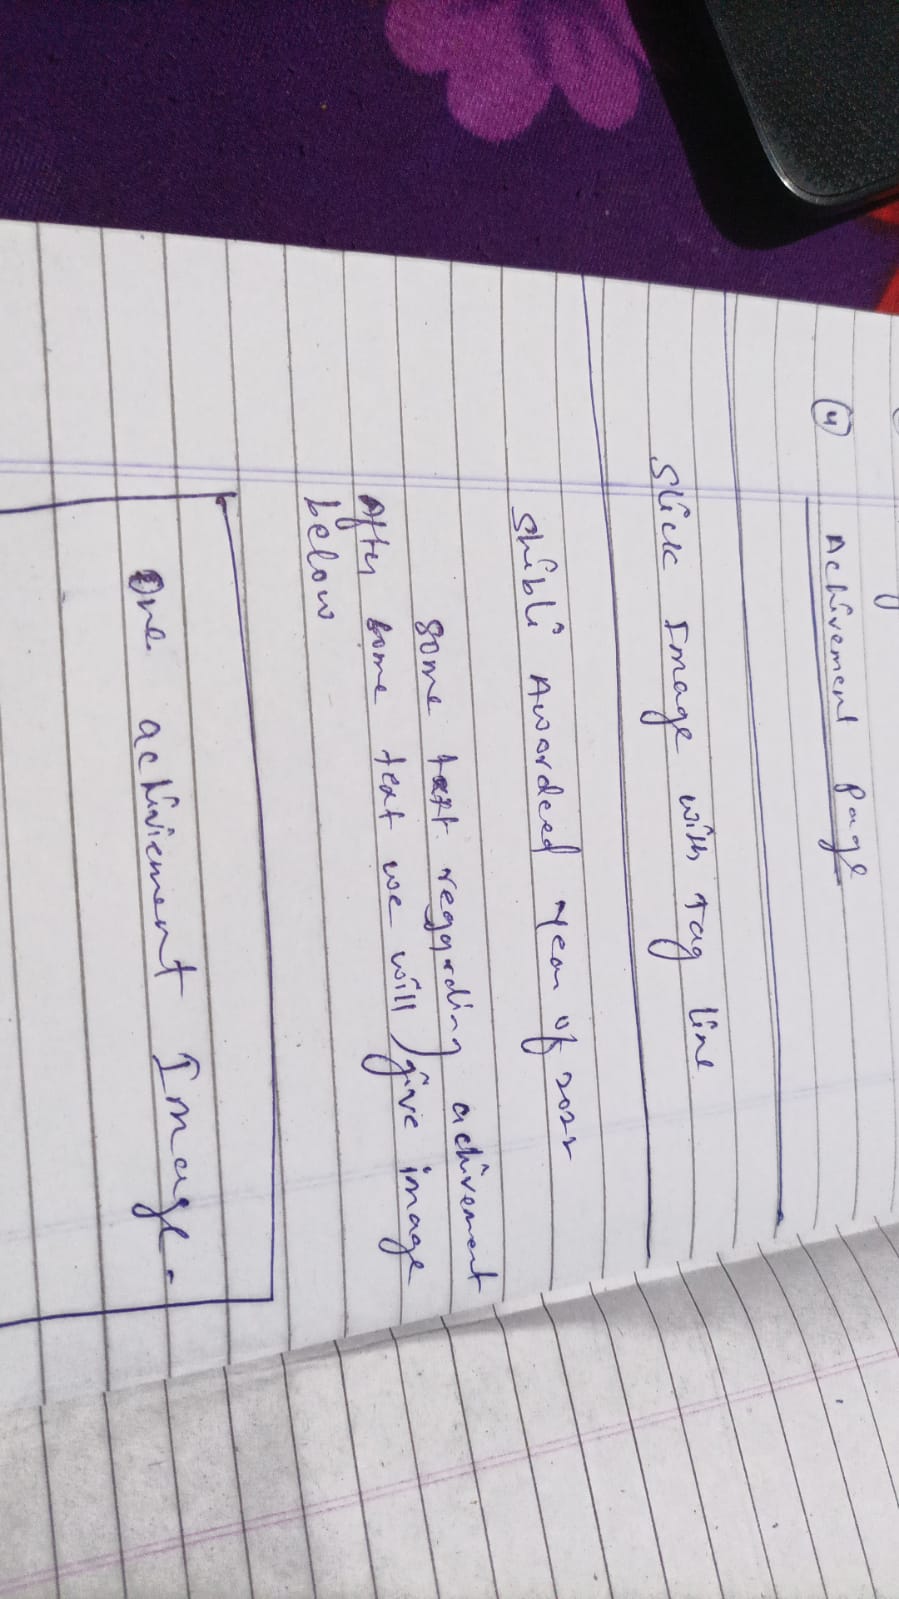 4 Achivement Page
Slick Image with Tag line
Shibli Awordeed Year of 2022
Some text regarding achivement
After some text we will give image
below
One achiviement Image.